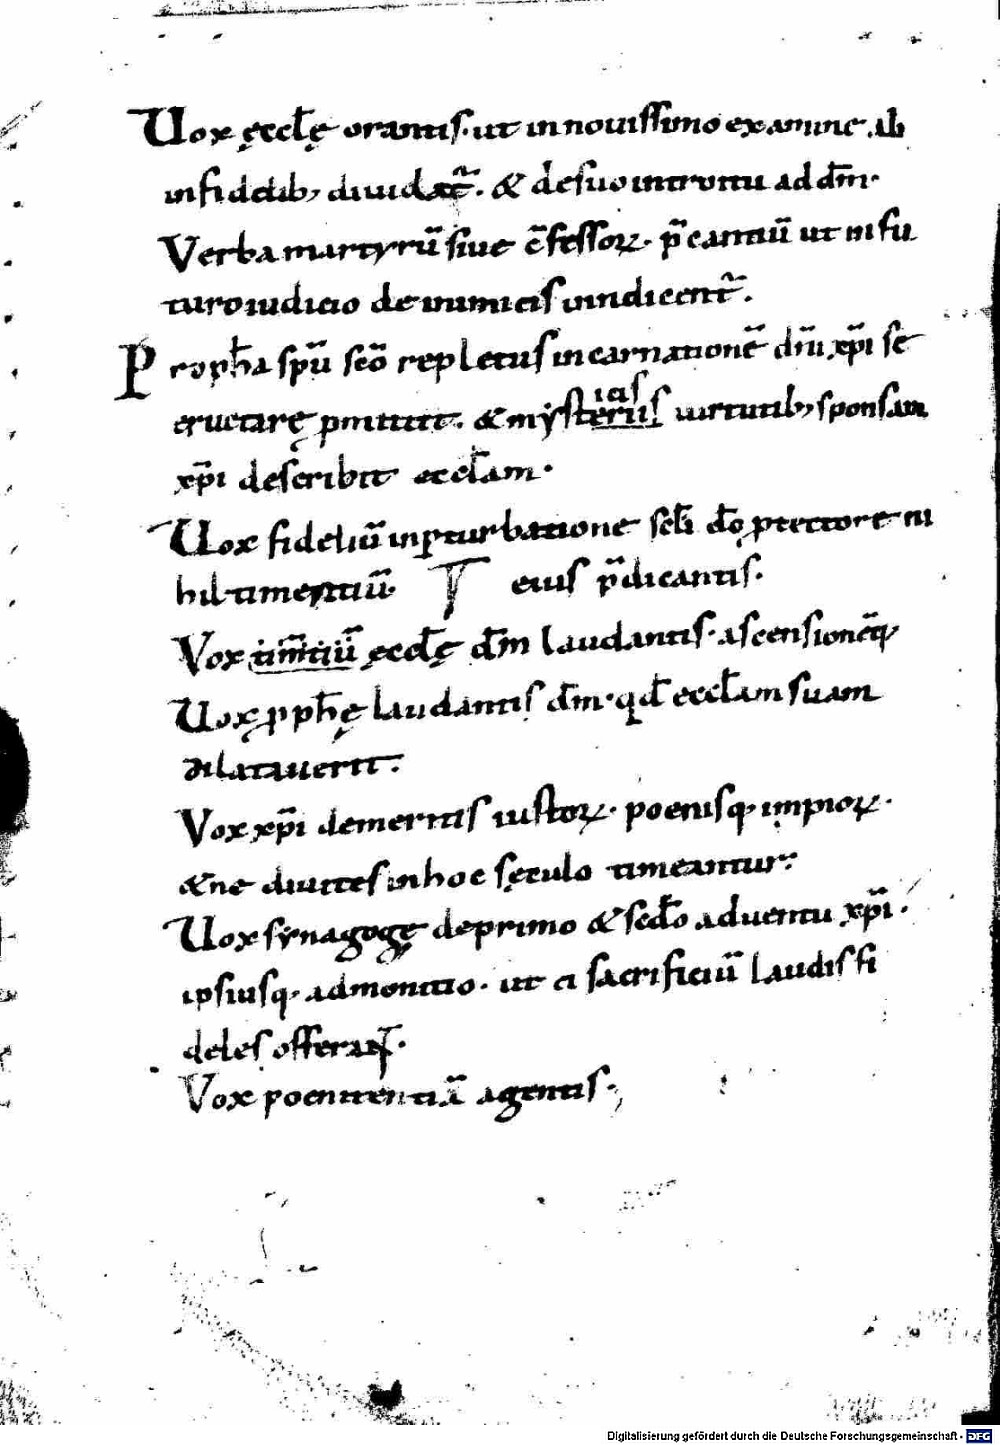 Uox ęccl̄ę orantis· ut in nouissimo examine ab
infidelib; diuidat᷑· & desuo introitu ad dm̄·
Verba martyrū siue c̄fessoꝝ· p̄cantiū ut in fu
turo iudicio de inimicis uindicent᷑·
Proph̄a sp̄u sc̄o repletus incarnationē dn̄i xp̄i se
eructarę ꝓmittit· & mysteriis uirtutib; sponsam
icis
xp̄i describit eccl̄am·
Uox fideliū inꝑturbatione sc̄li dō ꝓtectore ni
hil timentiū· T eius p̄dicantis·
Vox ęccl̄ę dm̄ laudantis· ascensionēq·
Uox ꝓph̄ę laudantis dm̄· qd̄ eccl̄am suam
dilatauerit·
Vox xp̄i demeritis iustoꝝ· poenisq· impioꝝ·
&ne diuites inhoc sęculo timeantur·
Uox synagogę deprimo & scd̄o aduentu xp̄i·
ipsiusq· admonitio· ut ei sacrificiū laudis fi
deles offerant·
Vox poenitentiā agentis·
Digitalisierung gefördert durch die Deutsche Forschungsgemeinschaft - DFG